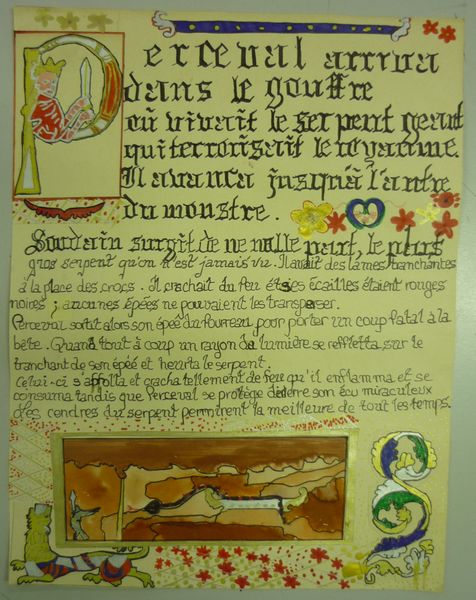 Perceval arriva
dans le gouffre
où vivait le serpent geant
qui terrorisait le royaume.
Il avanca jusqu'à l'antre
du monstre.
Soudain surgit de ne nulle part, le plus
gros serpent qu'on n'est jamais vu. Il avait des lames tranchantes
à la place des crocs. il crachait du feu et ses écailles étaient rouges
noires ; aucunes épées ne pouvaient les transpaser.
Perceval sortit alors son épée du fourreau pour porter un coup fatal à la
bête. Quand tout à coup un rayon de lumière se reffletta sur le
tranchant de son épée et heurta le serpent.
Celui-ci s'affolla et cracha tellement de feu qu'il enflamma et se
consuma tandis que Perceval se protège derrière son écu miraculeux
des cendres du serpent permirent la meilleure de tout les temps.